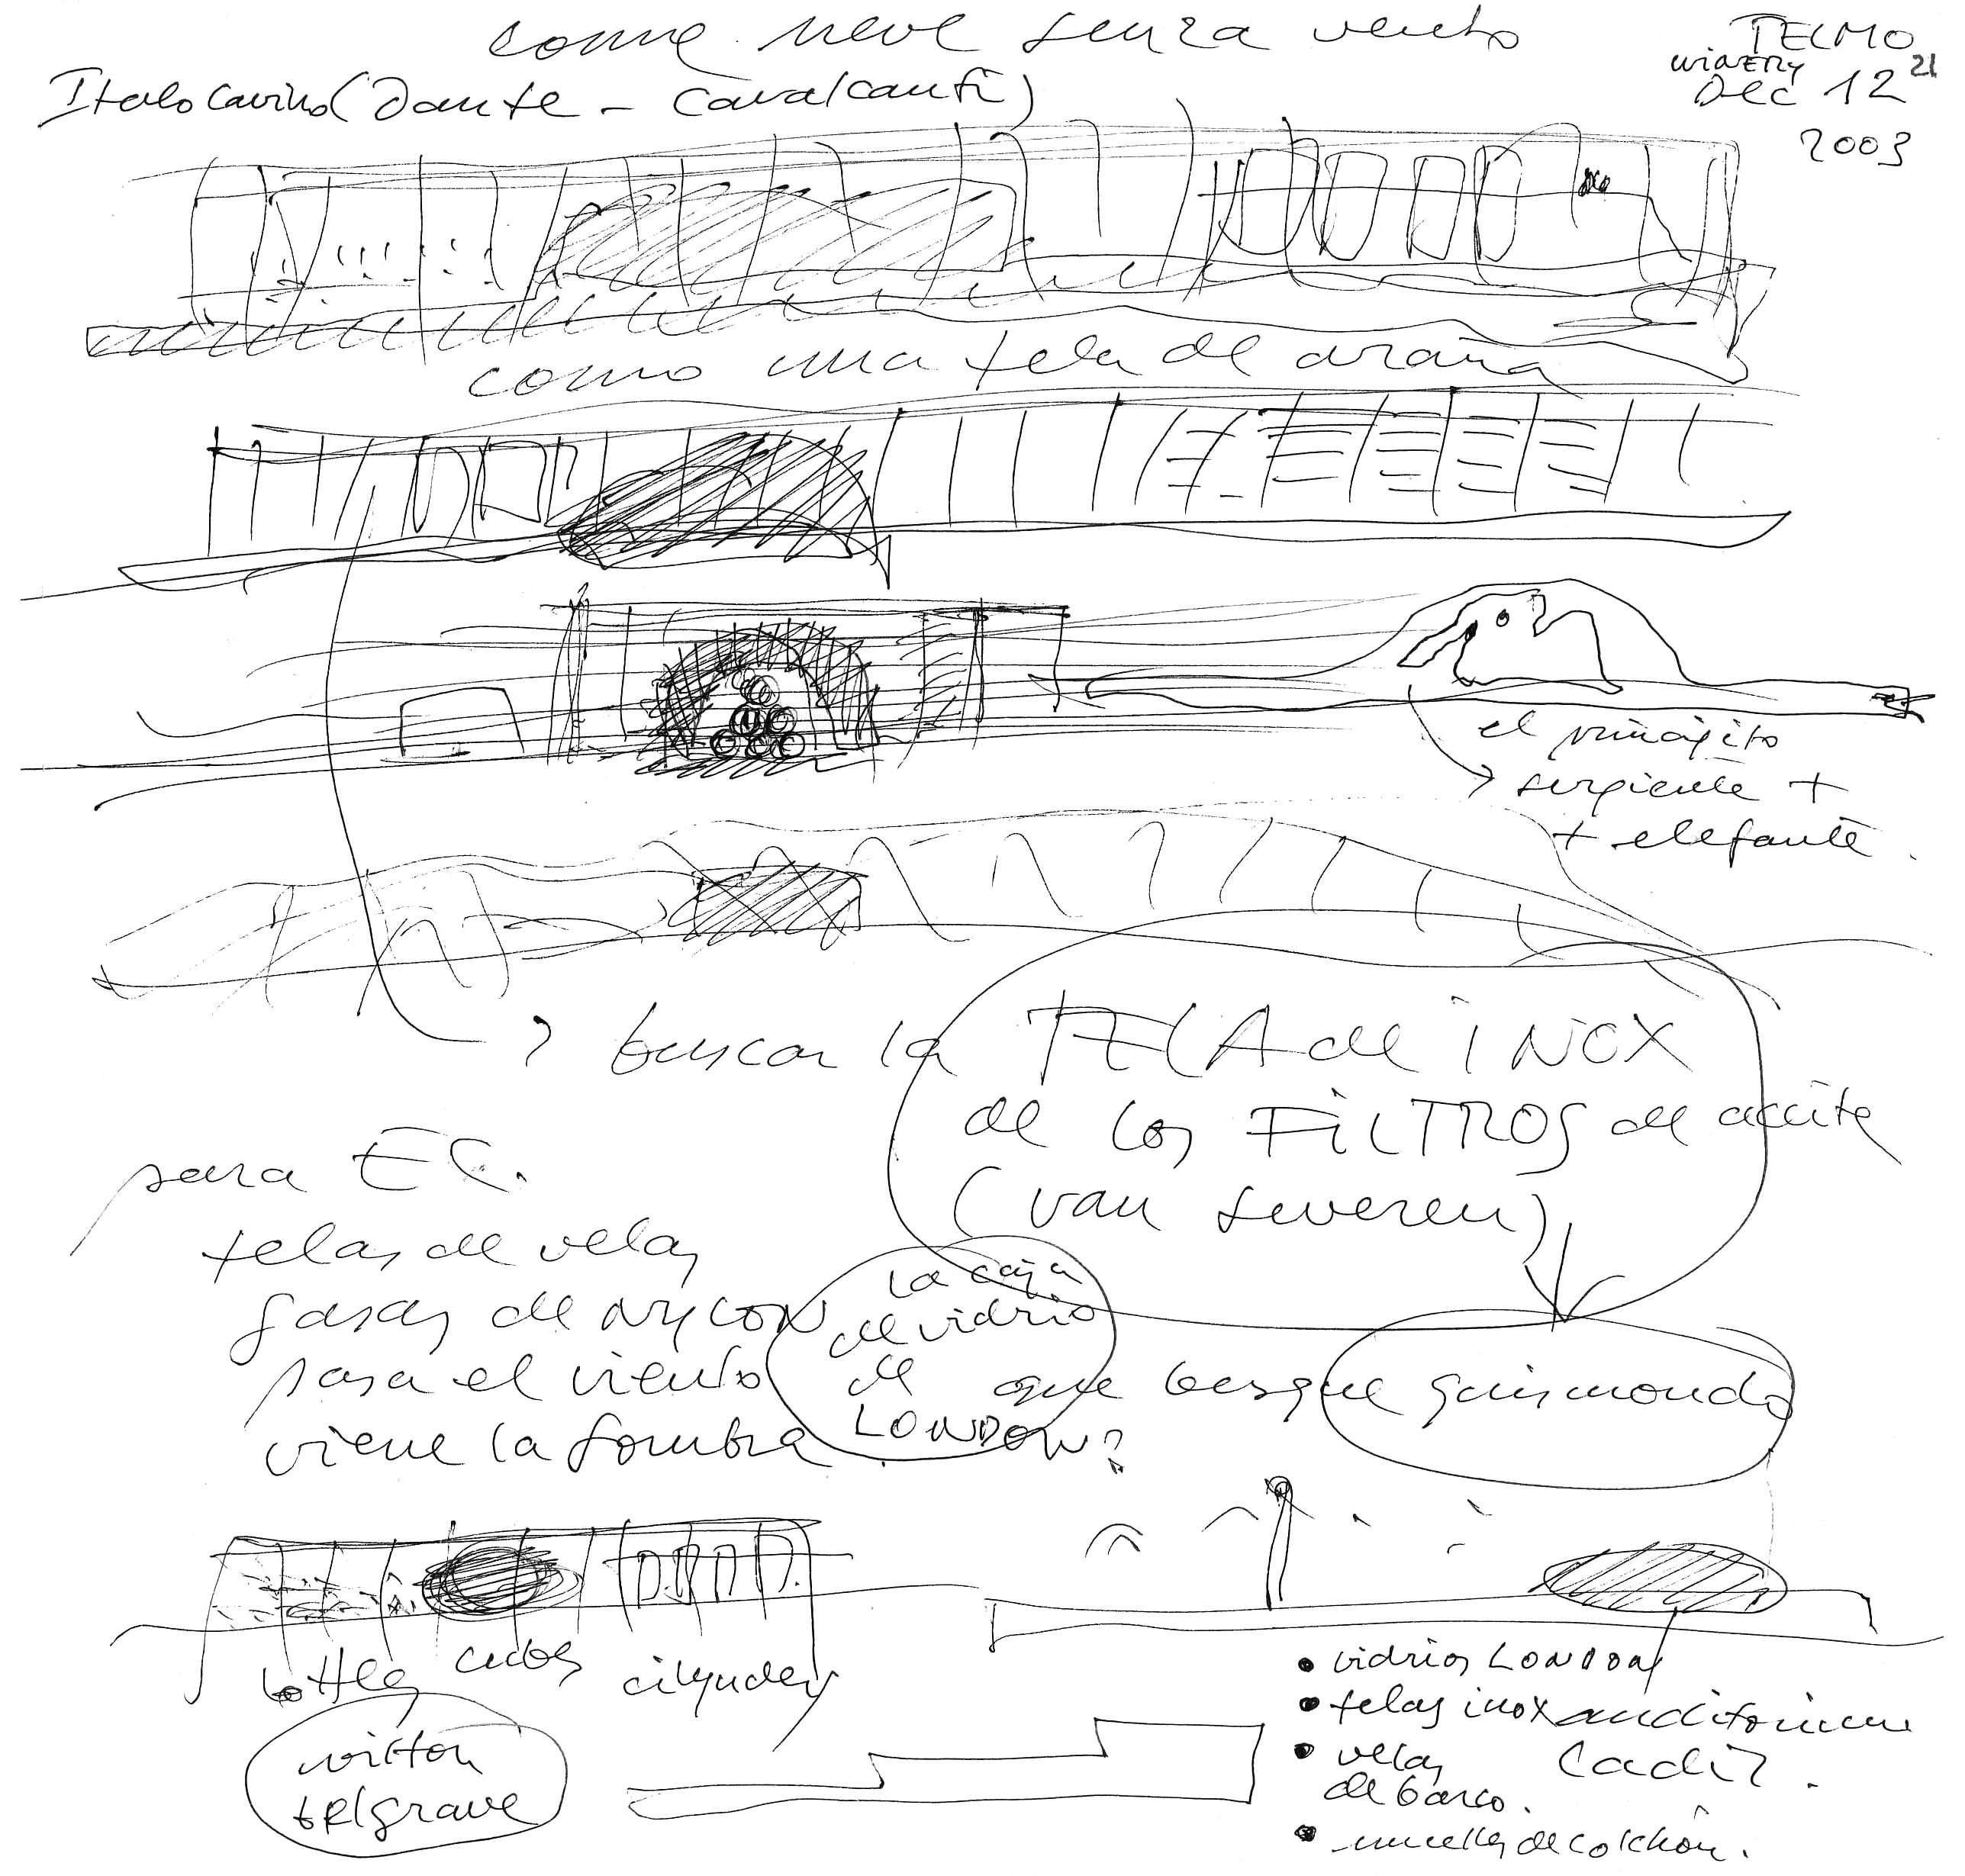 come neve senza vento
TECMO
winery
Dec 12 21
2003
Italo Cavino (Dante - Cavalcanti)
como una tela de araña
el principito
serpiente +
+ elefante.
buscar la TELA de iNOX
de los FiLTROS de aceite
(van severen)
para EC.
telas de velas
gasas de NYLON
pasa el viento
viene la sombra
la caja
de vidrio
de
LONDON?
que busque guismondo
bottles
cubes
cilynders
vitton
belgrave
• vidrios LONDON
• telas inox auditorium
Cadiz.
• velas
de barco.
• muelles de colchón.